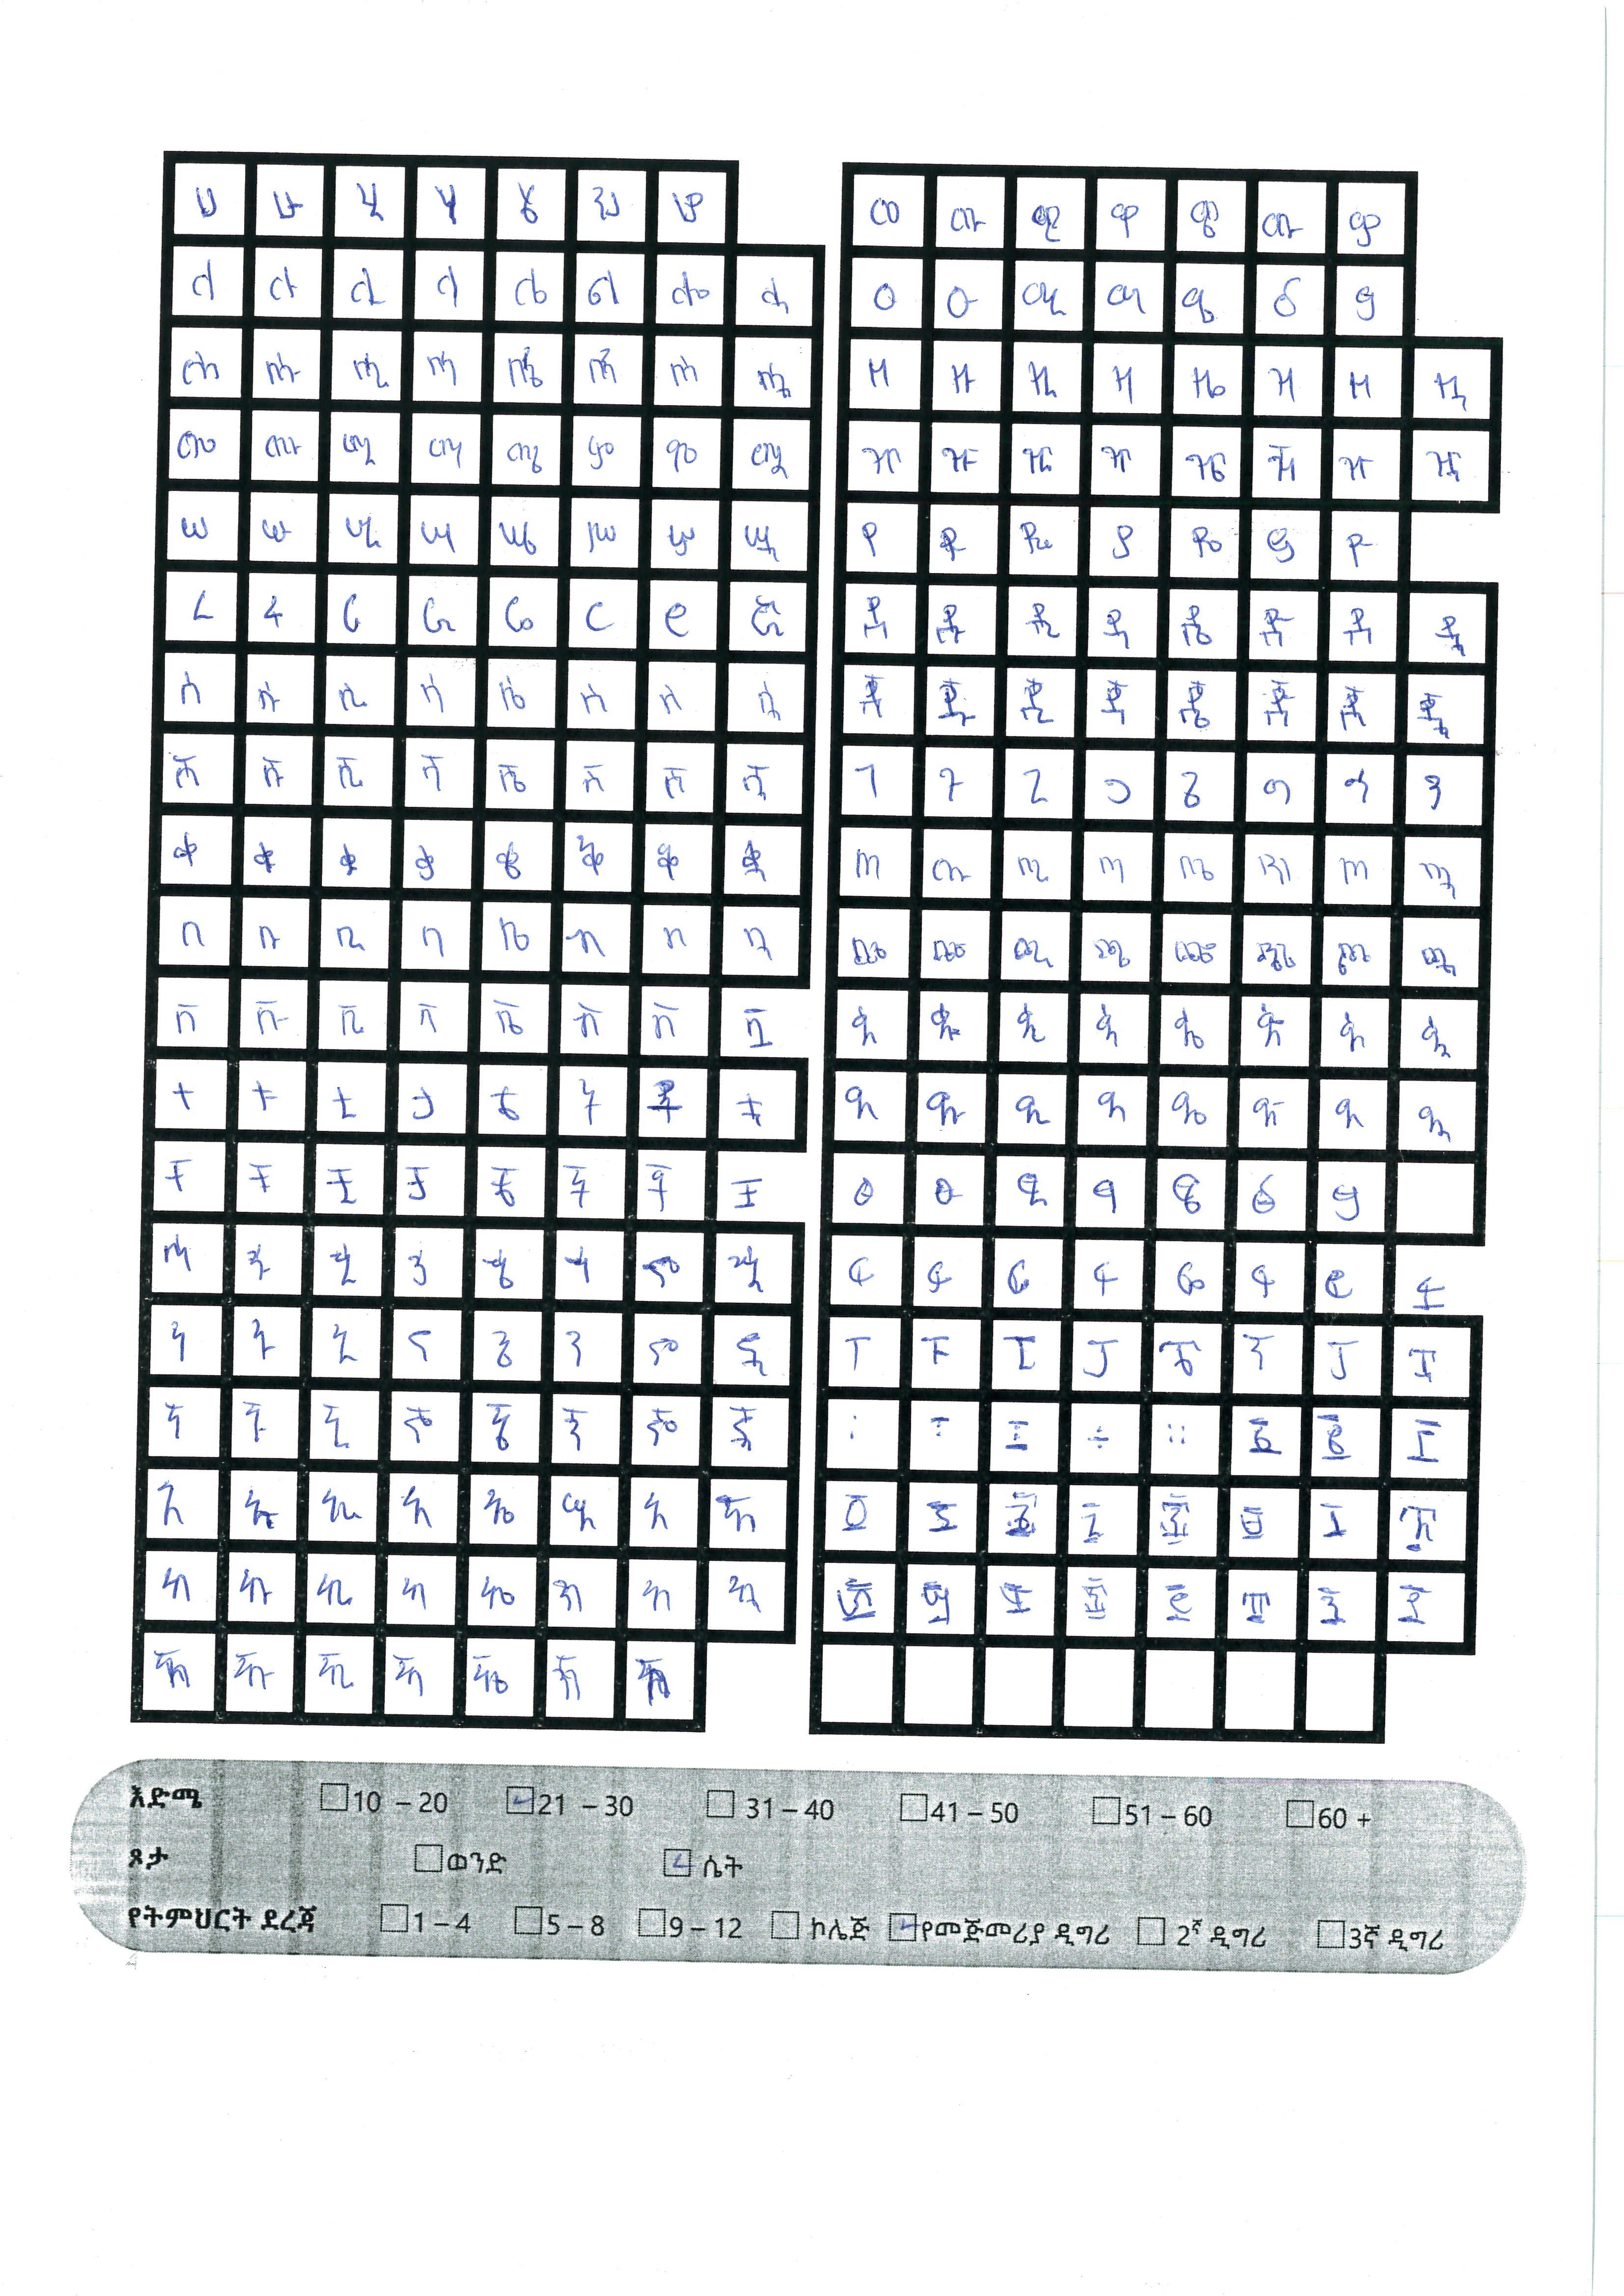 ሀ ሁ ሂ ሃ ሄ ህ ሆ
ለ ሉ ሊ ላ ሌ ል ሎ ሏ
ሐ ሑ ሒ ሓ ሔ ሕ ሖ ሗ
መ ሙ ሚ ማ ሜ ም ሞ ሟ
ሠ ሡ ሢ ሣ ሤ ሥ ሦ ሧ
ረ ሩ ሪ ራ ሬ ር ሮ ሯ
ሰ ሱ ሲ ሳ ሴ ስ ሶ ሷ
ሸ ሹ ሺ ሻ ሼ ሽ ሾ ሿ
ቀ ቁ ቂ ቃ ቄ ቅ ቆ ቋ
በ ቡ ቢ ባ ቤ ብ ቦ ቧ
ቨ ቩ ቪ ቫ ቬ ቭ ቮ ቯ
ተ ቱ ቲ ታ ቴ ት ቶ ቷ
ቸ ቹ ቺ ቻ ቼ ች ቾ ቿ
ኀ ኁ ኂ ኃ ኄ ኅ ኆ ኋ
ነ ኑ ኒ ና ኔ ን ኖ ኗ
ኘ ኙ ኚ ኛ ኜ ኝ ኞ ኟ
አ ኡ ኢ ኣ ኤ እ ኦ ኧ
ከ ኩ ኪ ካ ኬ ክ ኮ ኳ
ኸ ኹ ኺ ኻ ኼ ኽ ኾ
ወ ዉ ዊ ዋ ዌ ው ዎ
ዐ ዑ ዒ ዓ ዔ ዕ ዖ
ዘ ዙ ዚ ዛ ዜ ዝ ዞ ዟ
ዠ ዡ ዢ ዣ ዤ ዥ ዦ ዧ
የ ዩ ዪ ያ ዬ ይ ዮ
ደ ዱ ዲ ዳ ዴ ድ ዶ ዷ
ጀ ጁ ጂ ጃ ጄ ጅ ጆ ጇ
ገ ጉ ጊ ጋ ጌ ግ ጎ ጓ
ጠ ጡ ጢ ጣ ጤ ጥ ጦ ጧ
ጨ ጩ ጪ ጫ ጬ ጭ ጮ ጯ
ጰ ጱ ጲ ጳ ጴ ጵ ጶ ጷ
ጸ ጹ ጺ ጻ ጼ ጽ ጾ ጿ
ፀ ፁ ፂ ፃ ፄ ፅ ፆ
ፈ ፉ ፊ ፋ ፌ ፍ ፎ ፏ
ፐ ፑ ፒ ፓ ፔ ፕ ፖ ፗ
እድሜ 10 – 20 21 – 30 31 – 40 41 – 50 51 – 60 60 +
ጾታ ወንድ ሴት
የትምህርት ደረጃ 1 – 4 5 – 8 9 – 12 ኮሌጅ የመጅመሪያ ዲግሪ 2ኛ ዲግሪ 3ኛ ዲግሪ